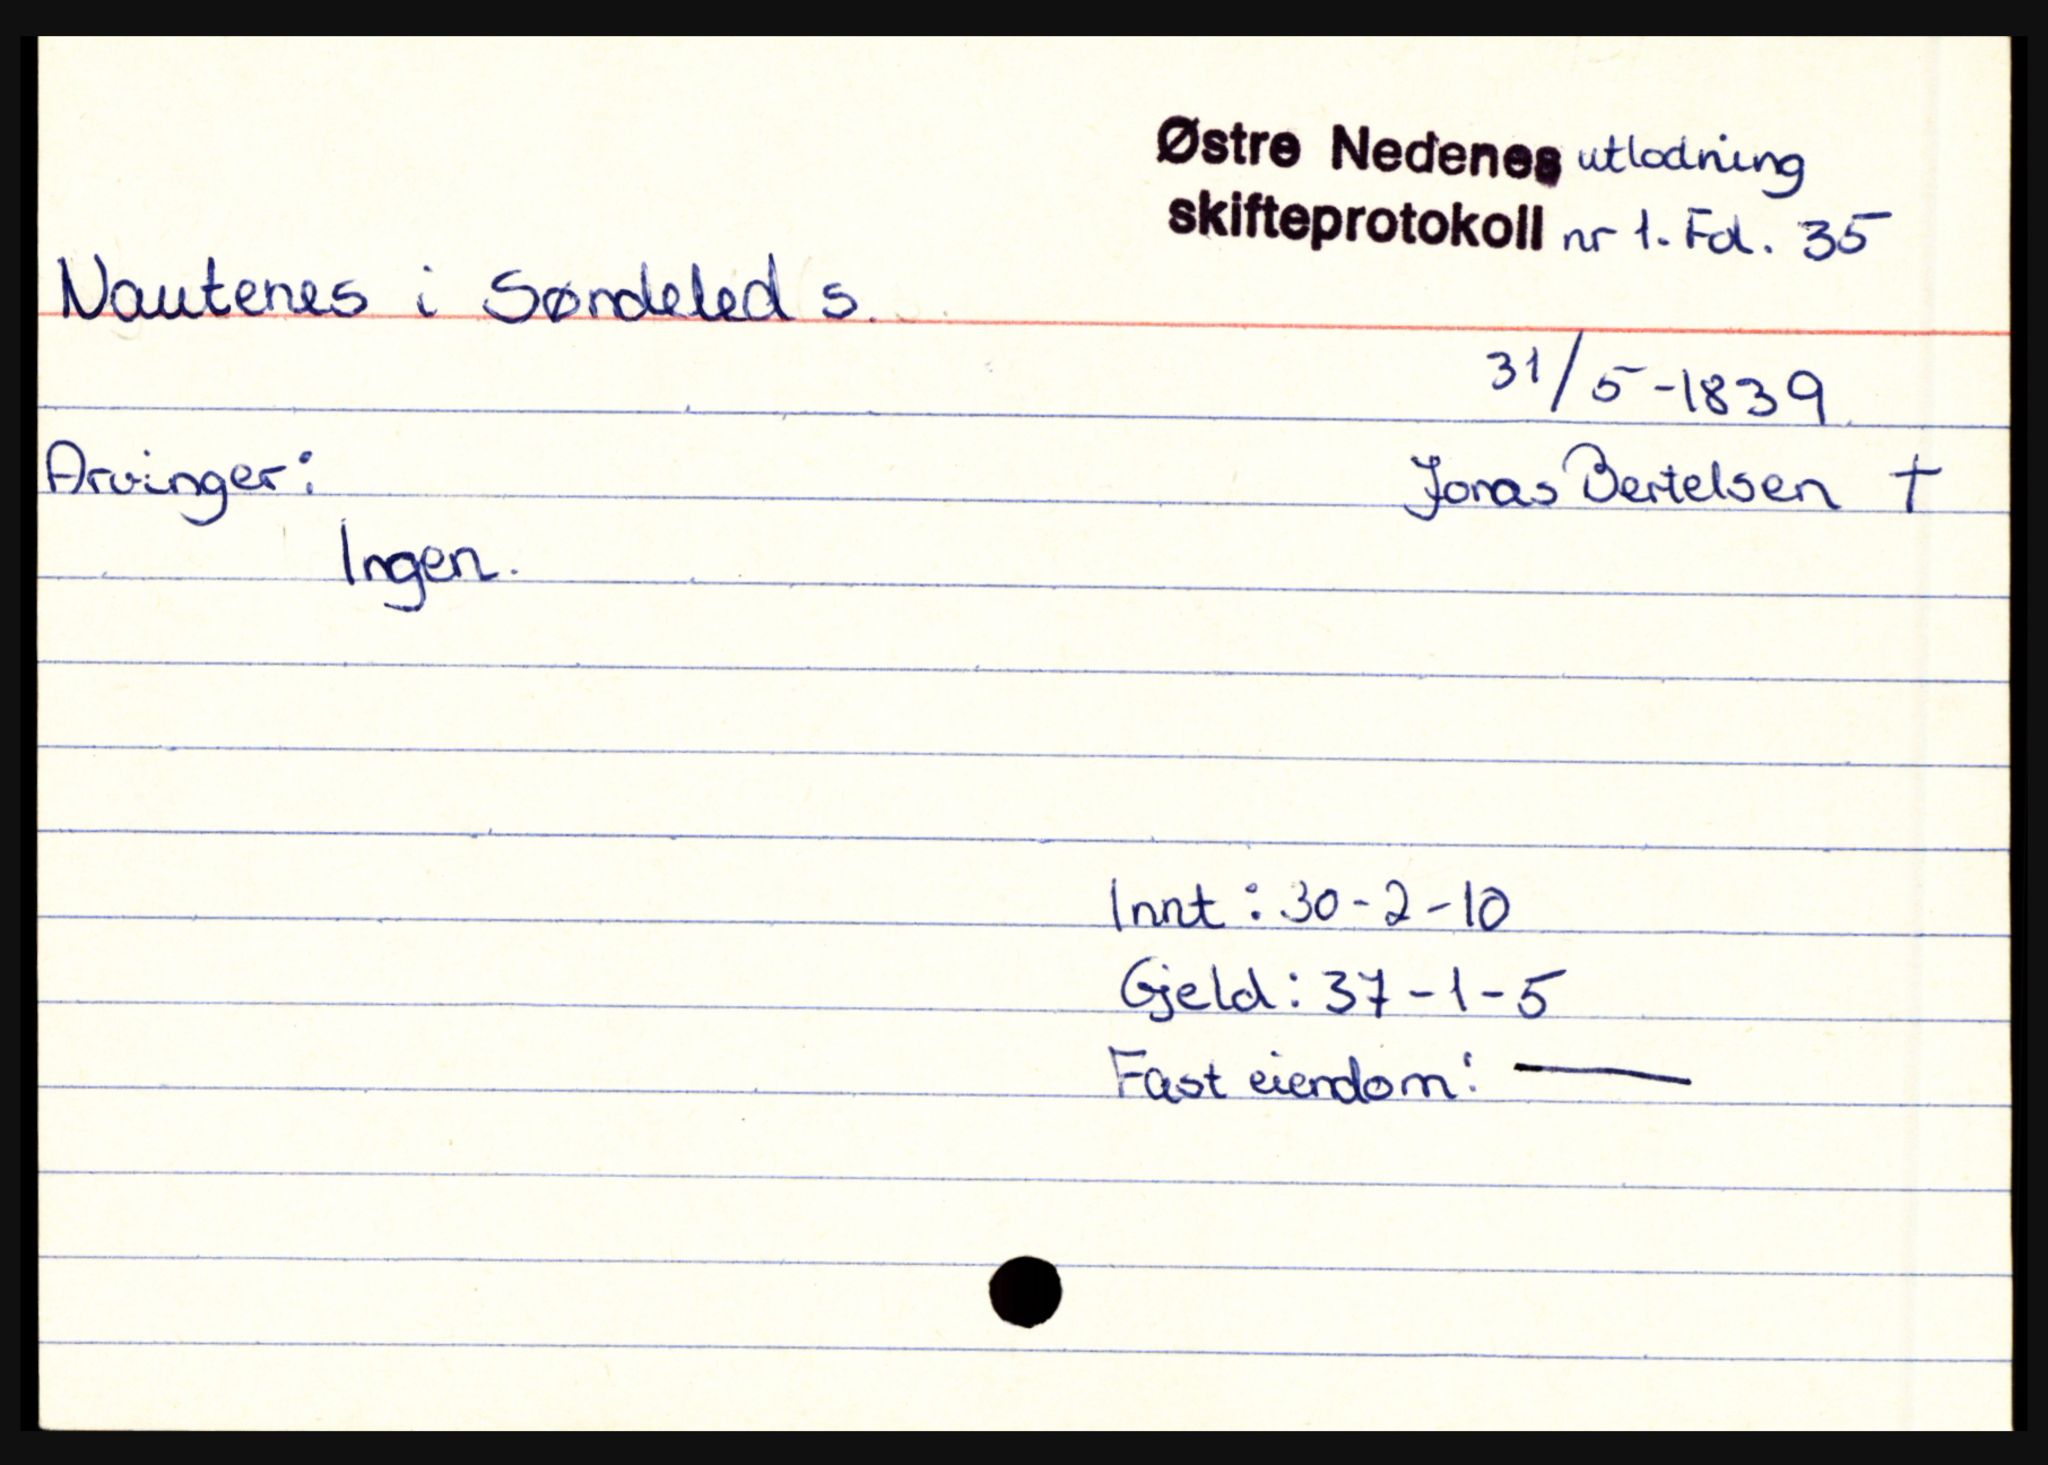 Østre Nedenes utlodning
skifteprotokoll nr 1. Fol. 35
Nautenes i Søndeled s.
31/5-1839
Arvinger:
Jonas Bertelsen †
Ingen.
Innt: 30-2-10
Gjeld: 37-1-5
Fast eiendom: —